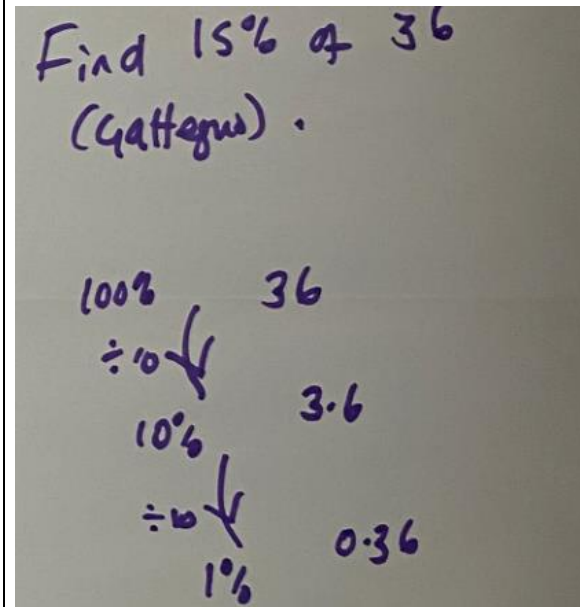 Find 15% of 36
(Gattegno).
100% 36
÷10
10% 3.6
÷10
1% 0.36